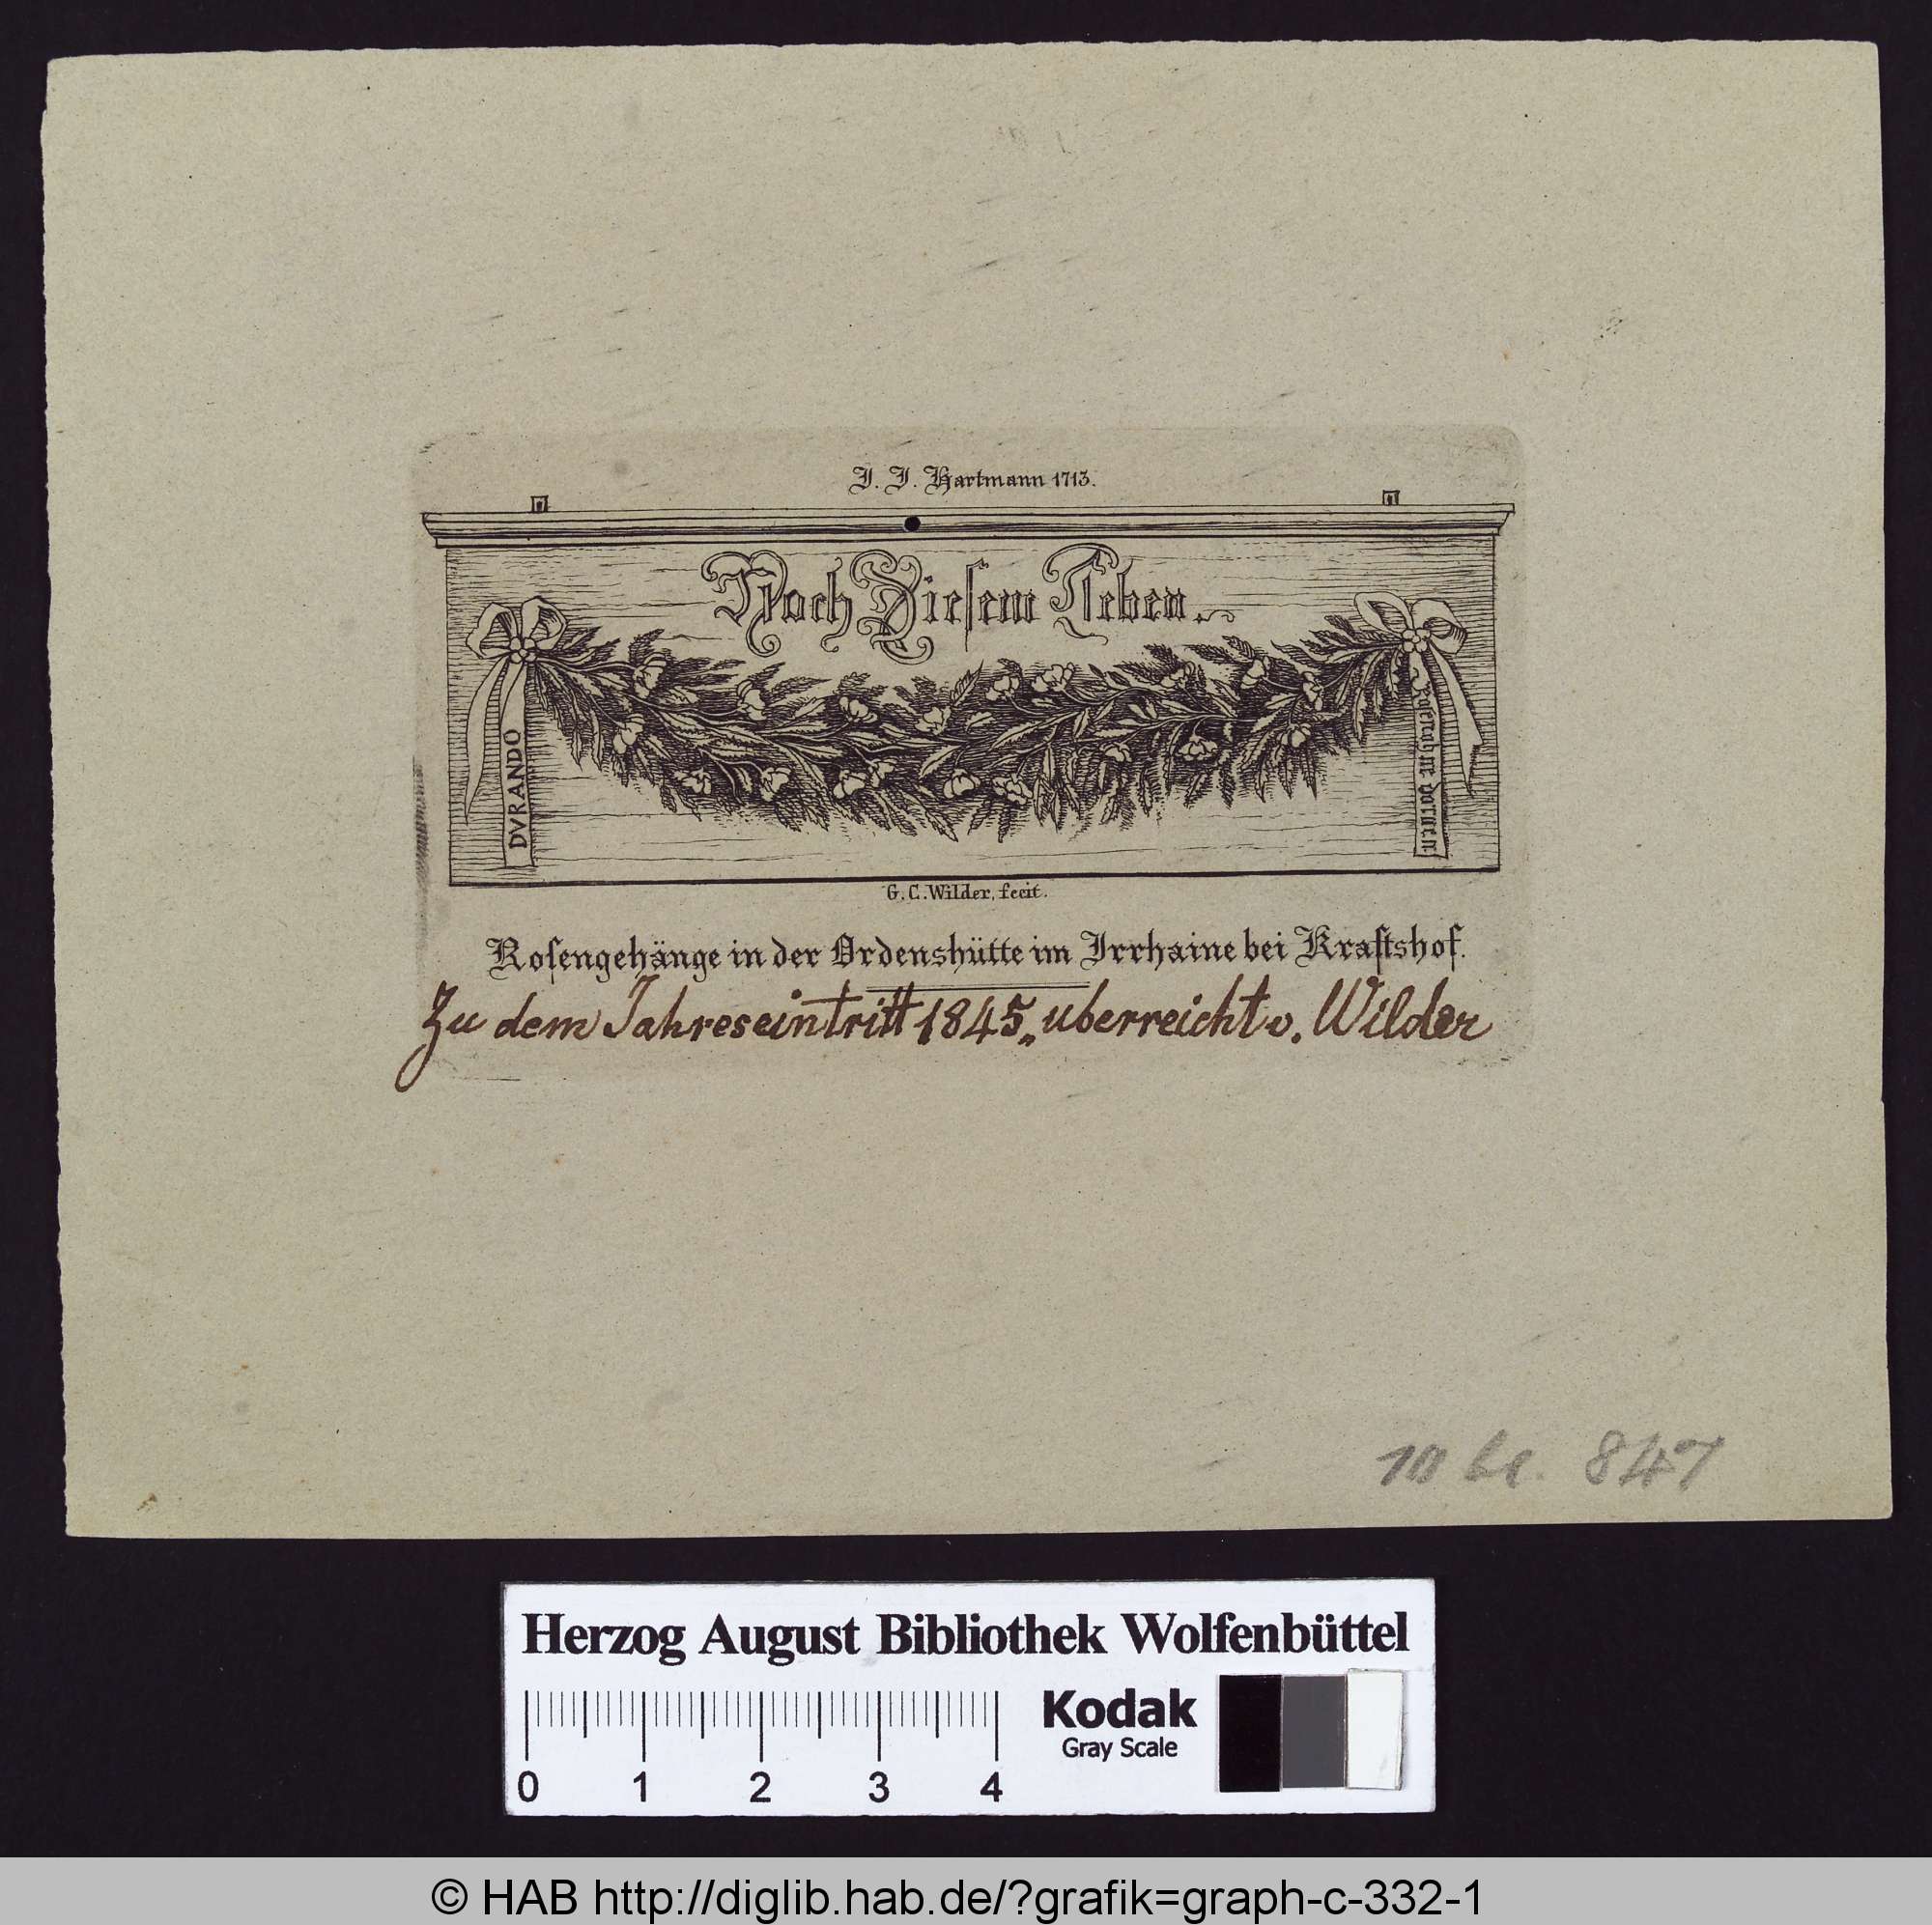 J. J. Hartmann 1713.
Noch Diesem Leben.
DVRANDO
Rosen ohne dornen.
G. C. Wilder, fecit.
Roſengehänge in der Ordenshütte im Irrhaine bei Kraftshof.
Zu dem Jahreseintritt 1845„ uberreicht v. Wilder
10 847
Herzog August Bibliothek Wolfenbüttel
Kodak
Gray Scale
0 1 2 3 4
© HAB http://diglib.hab.de/?grafik=graph-c-332-1